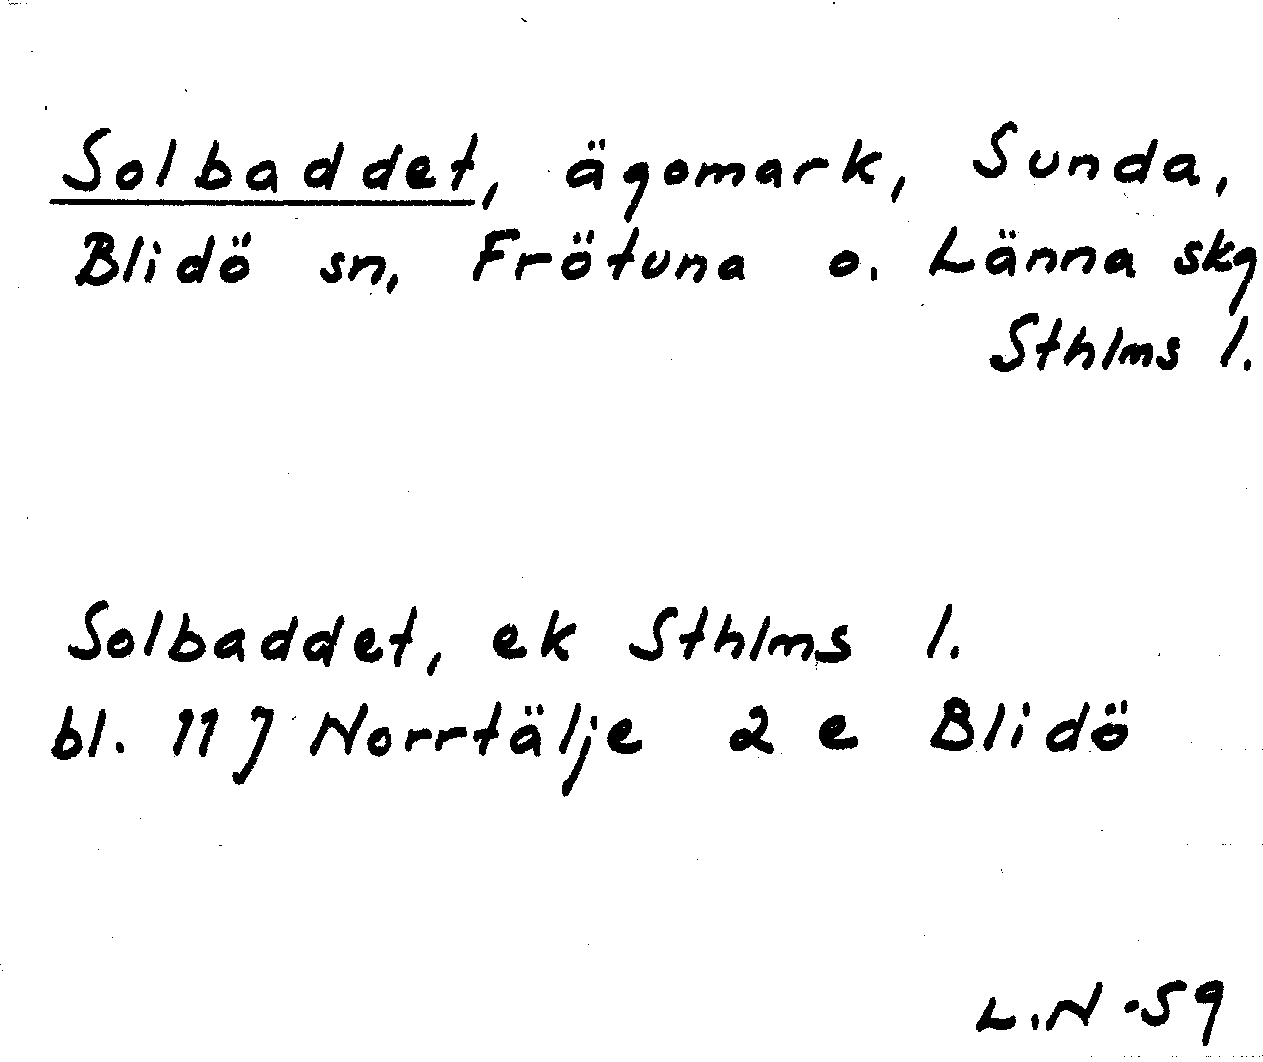 Solbaddet, ägomark, Sunda,
Blidö sn, Frötuna o. Länna skg
Sthlms l.
Solbaddet, ek Sthlms l.
bl. 11 J Norrtälje 2 e Blidö
L.N -59